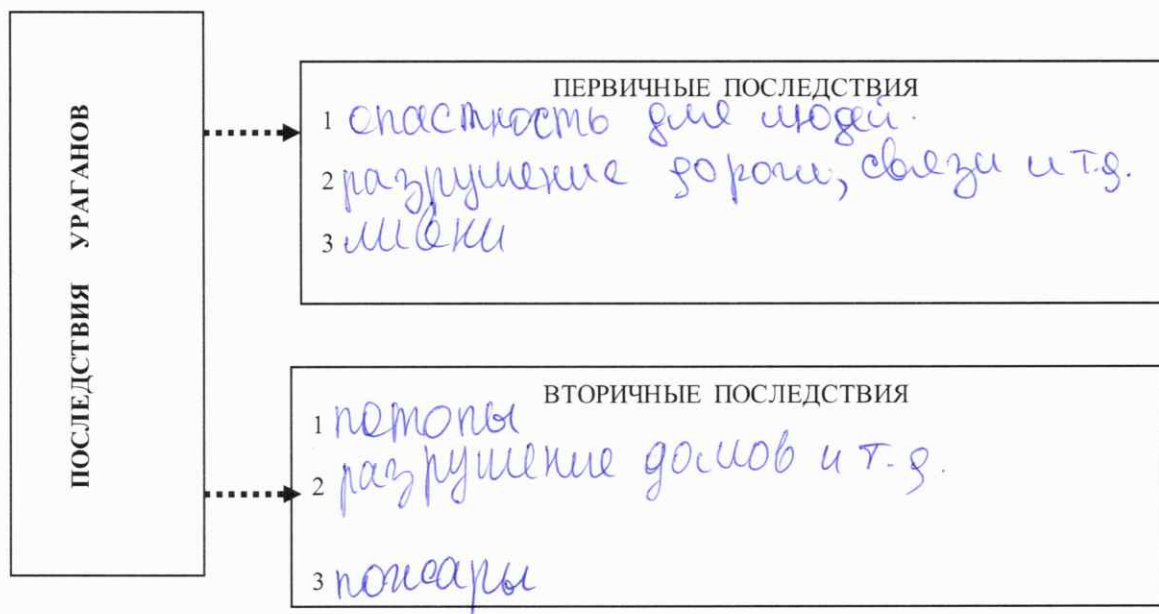 ПОСЛЕДСТВИЯ УРАГАНОВ
ПЕРВИЧНЫЕ ПОСЛЕДСТВИЯ
1 опастность для людей.
2 разрушение дороги, связи и т.д.
3 ливни
ВТОРИЧНЫЕ ПОСЛЕДСТВИЯ
1 потопы
2 разрушение домов и т.д.
3 пожары